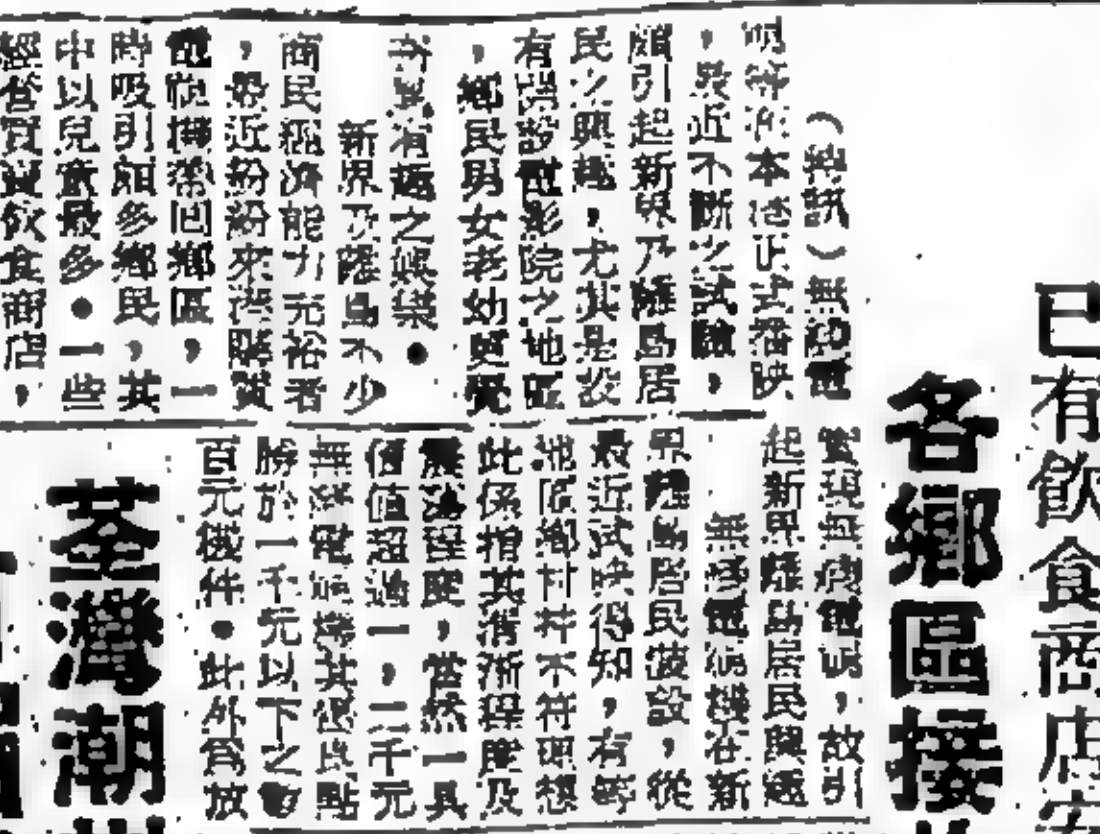 已有飲食商店
各鄉區接
(特訊)無線電
視將於本港正式播映
,最近不斷之試驗,
頗引起新界乃離島居
民之興趣,尤其是設
有電影院之地區
,鄉民男女老幼更覺
有趣之娛樂●
新界乃離島不少
商民經濟能力充裕者
,最近紛紛來港購買
電視機帶回鄉區,一
時吸引頗多鄉民,其
中以兒童最多●一些
經營買賣飲食商店,
實現無線電視,故引
起新界離島居民興趣
無線電視機在新
界離島居民裝設,從
最近試映得知,有等
地區鄉村并不符理想
此係指其清晰程度及
震盪程度,當然一具
價值超過一,二千元
無綫電視機其優良點
勝於一千元以下之數
百元機件●此外為放
荃灣潮